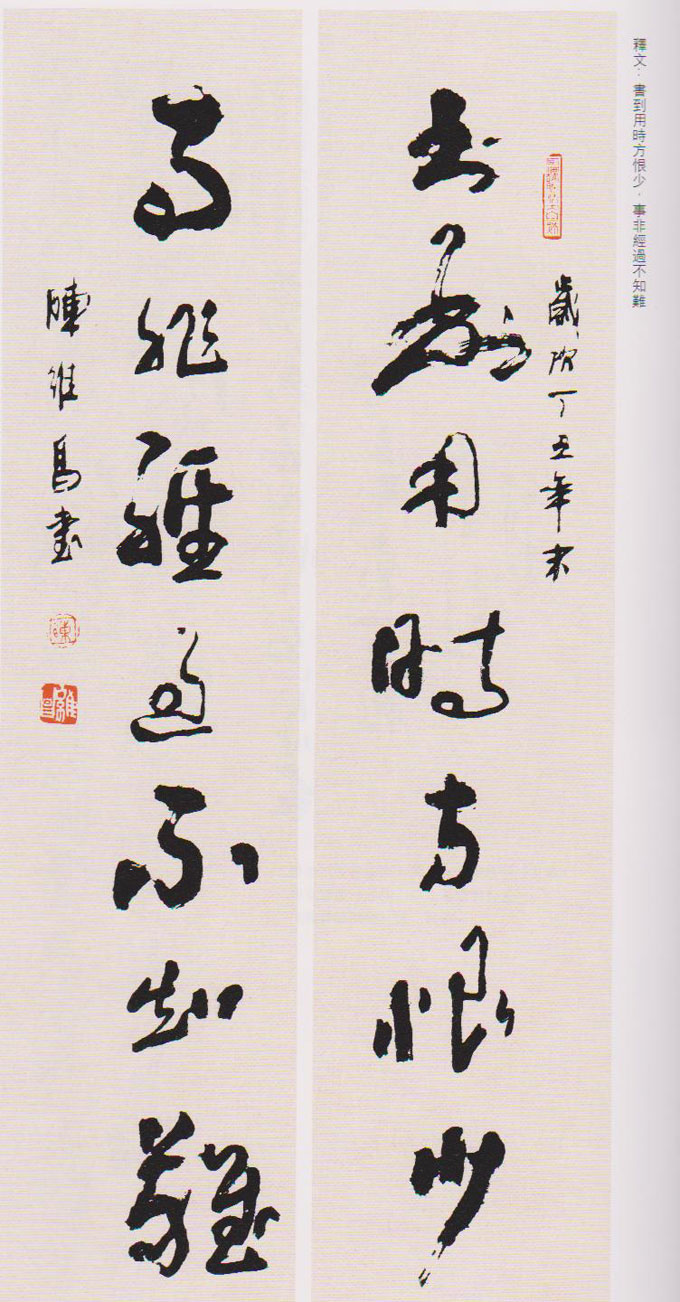 釋文：書到用時方恨少．事非經過不知難
歲次丁丑年末
書到用時方恨少
事非經過不知難
陳維昌書